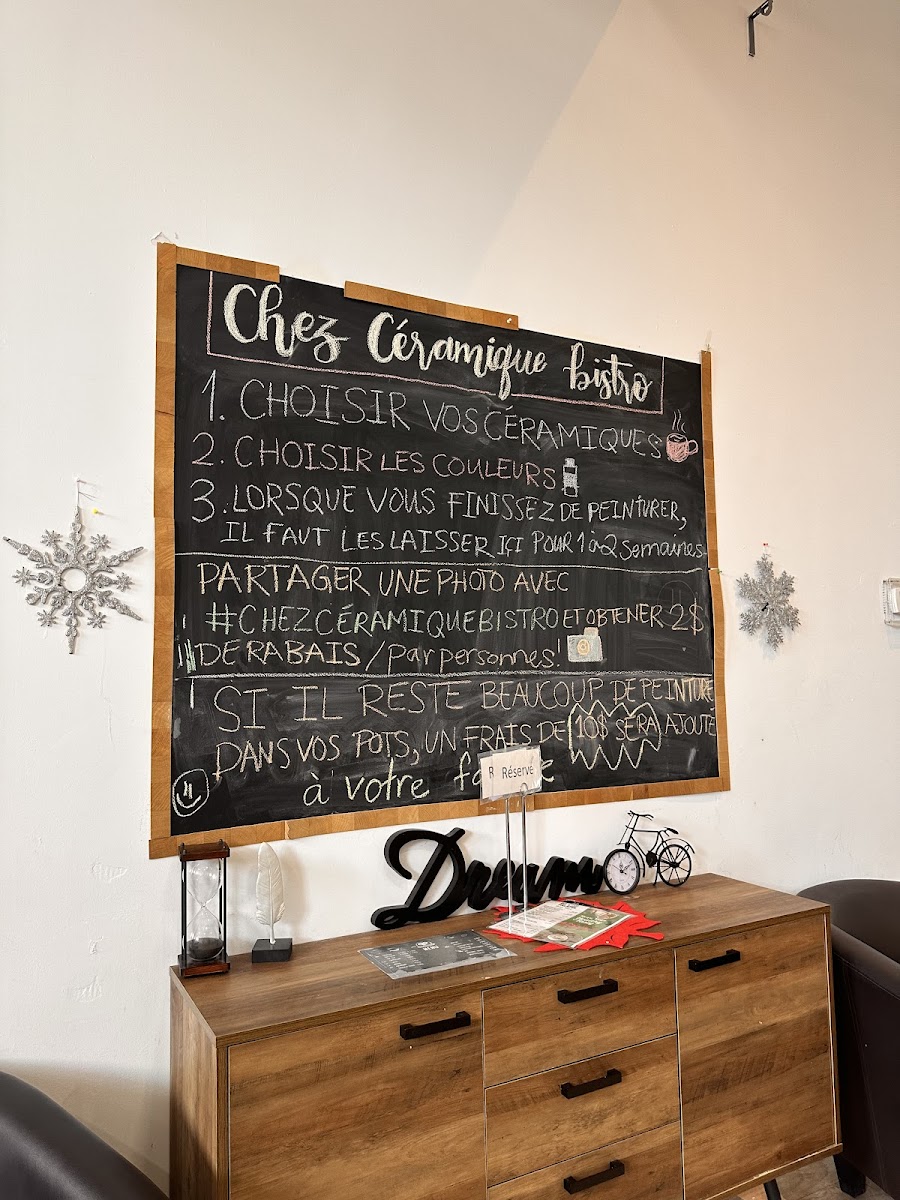 Chez Céramique bistro
1. CHOISIR VOS CÉRAMIQUES
2. CHOISIR LES COULEURS
3. LORSQUE VOUS FINISSEZ DE PEINTURER,
IL FAUT LES LAISSER ICI POUR 1 à 2 semaines
PARTAGER UNE PHOTO AVEC
#CHEZCÉRAMIQUEBISTRO ET OBTENER 2$
DE RABAIS / Par personnes!
SI IL RESTE BEAUCOUP DE PEINTURE
DANS VOS POTS, UN FRAIS DE 10$ SERA AJOUTÉ
à votre
Réservé
Dream